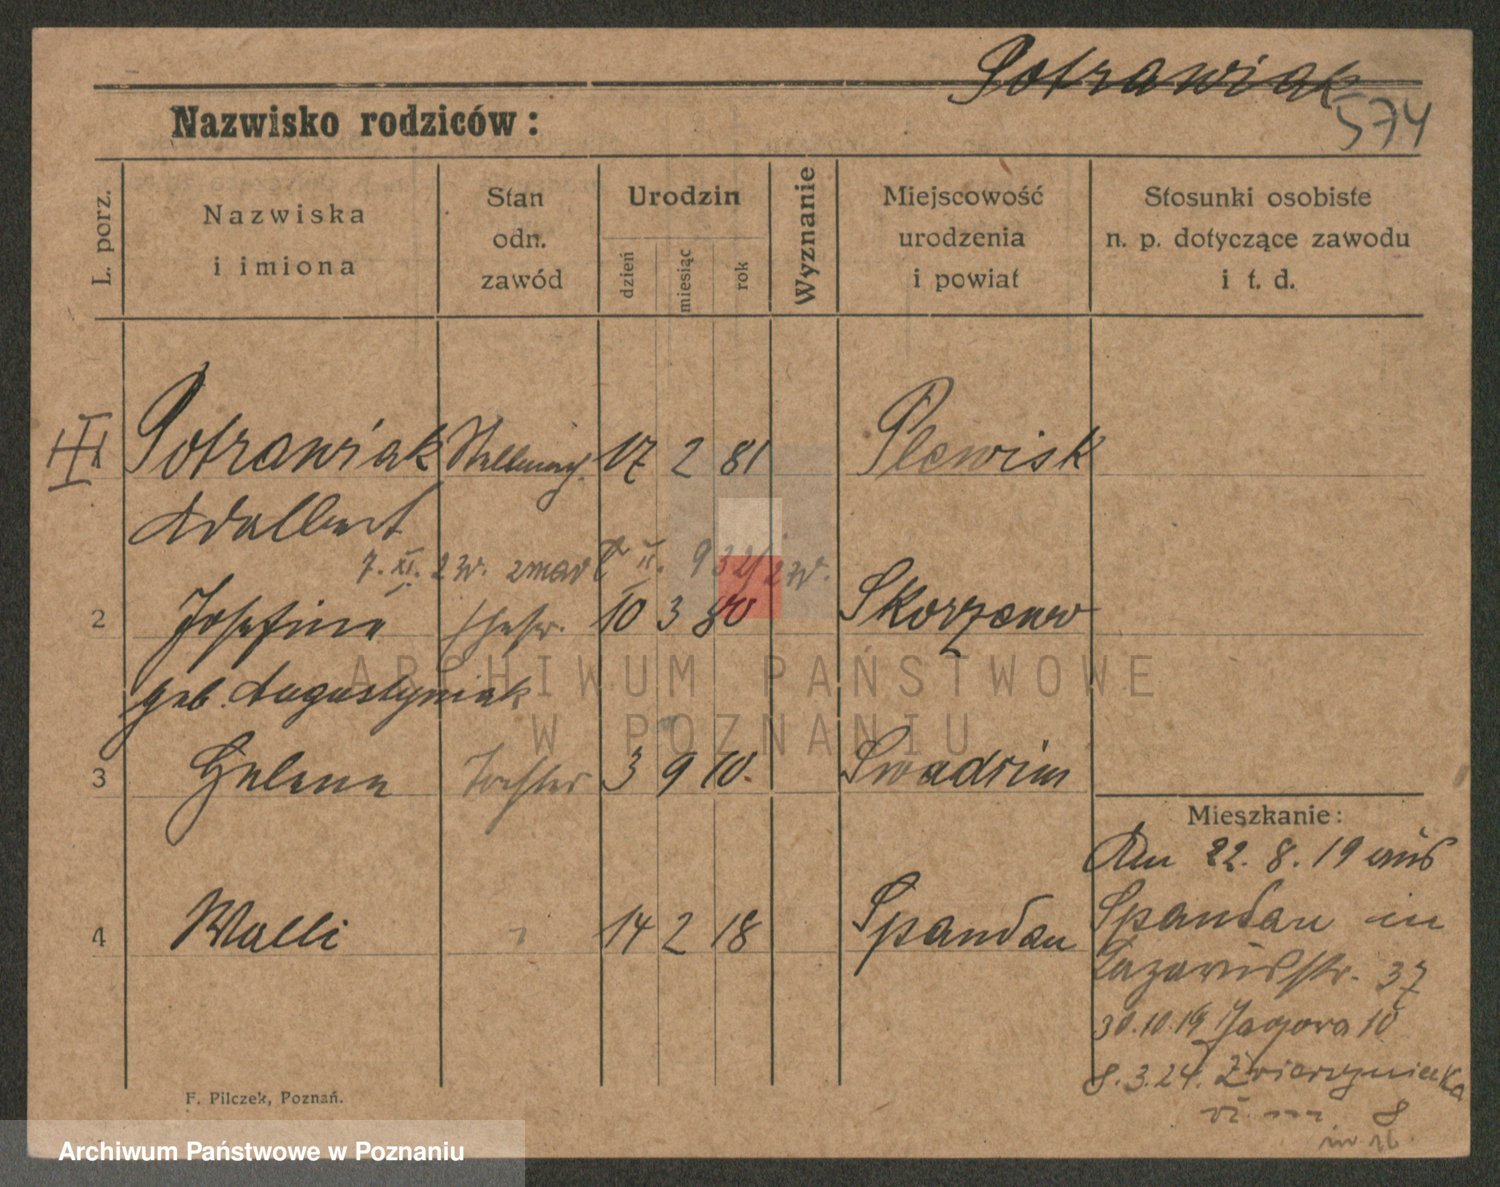 Potrawiak
574
Nazwisko rodziców:
L. porz.
Nazwiska
i imiona
Stan
odn.
zawód
Urodzin
dzień
miesiąc
rok
Wyznanie
Miejscowość
urodzenia
i powiat
Stosunki osobiste
n. p. dotyczące zawodu
i t. d.
1 Potrawiak Stellmach. 17 2 81 Plewisk
Adalbert
7. XI. zmarł 932
2 Josefine Ehefr. 10 3 80 Skorzewo
geb. Augustyniak
3 Helene Tochter 3 9 10. Swadzim
4 Walli " 14 2 18 Spandau
Mieszkanie:
Am 22. 8. 19 aus
Spandau in
Lazarusstr. 37
30.10.19 Jagora 10
8. 3. 24. Zwierzyniecka
8
F. Pilczek, Poznań.
ARCHIWUM PAŃSTWOWE
W POZNANIU
Archiwum Państwowe w Poznaniu